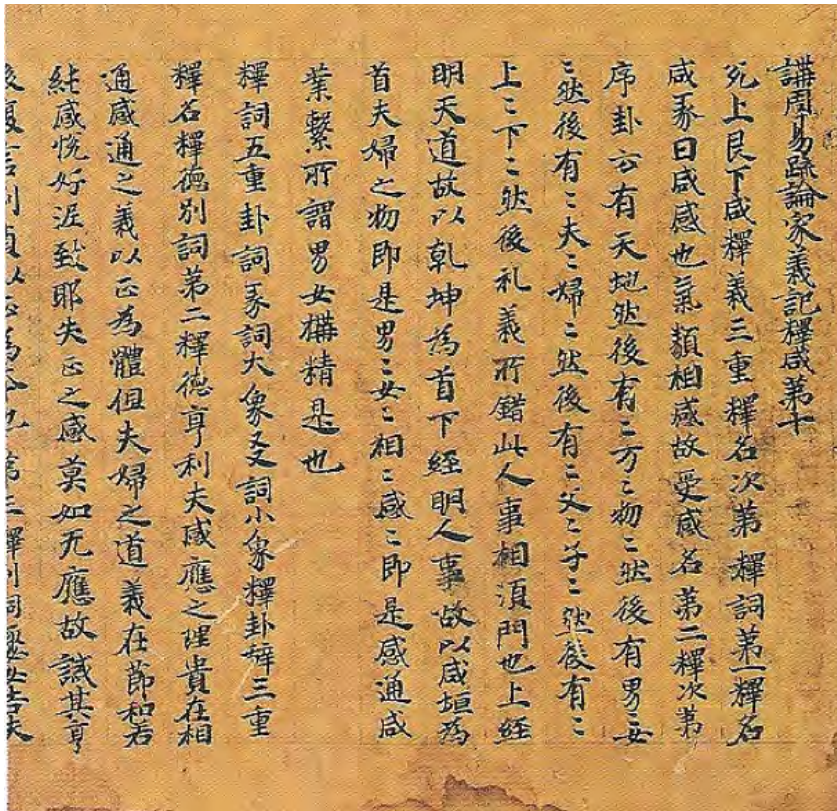 講周易疏論家義記釋咸第十
兊上艮下咸釋義三重釋名次第釋詞第一釋名
咸彖曰咸感也氣類相感故受咸名第二釋次第
序卦云有天地然後有〻万〻物〻然後有男〻女
〻然後有〻夫〻婦〻然後有〻父〻子〻然後有〻
上〻下〻然後礼義所錯此人事相湏門也上經
明天道故以乹坤為首下經明人事故以咸恒為
首夫婦之物即是男〻女〻相〻感〻即是感通咸
業繫所謂男女構精是也
釋詞五重卦詞彖詞大象爻詞小象釋卦辞三重
釋名釋德別詞第二釋德亨利夫感應之理貴在相
通感通之義以正為體但夫婦之道義在節和若
純感悅好涅致耶失正之感莫如无應故誡其亨